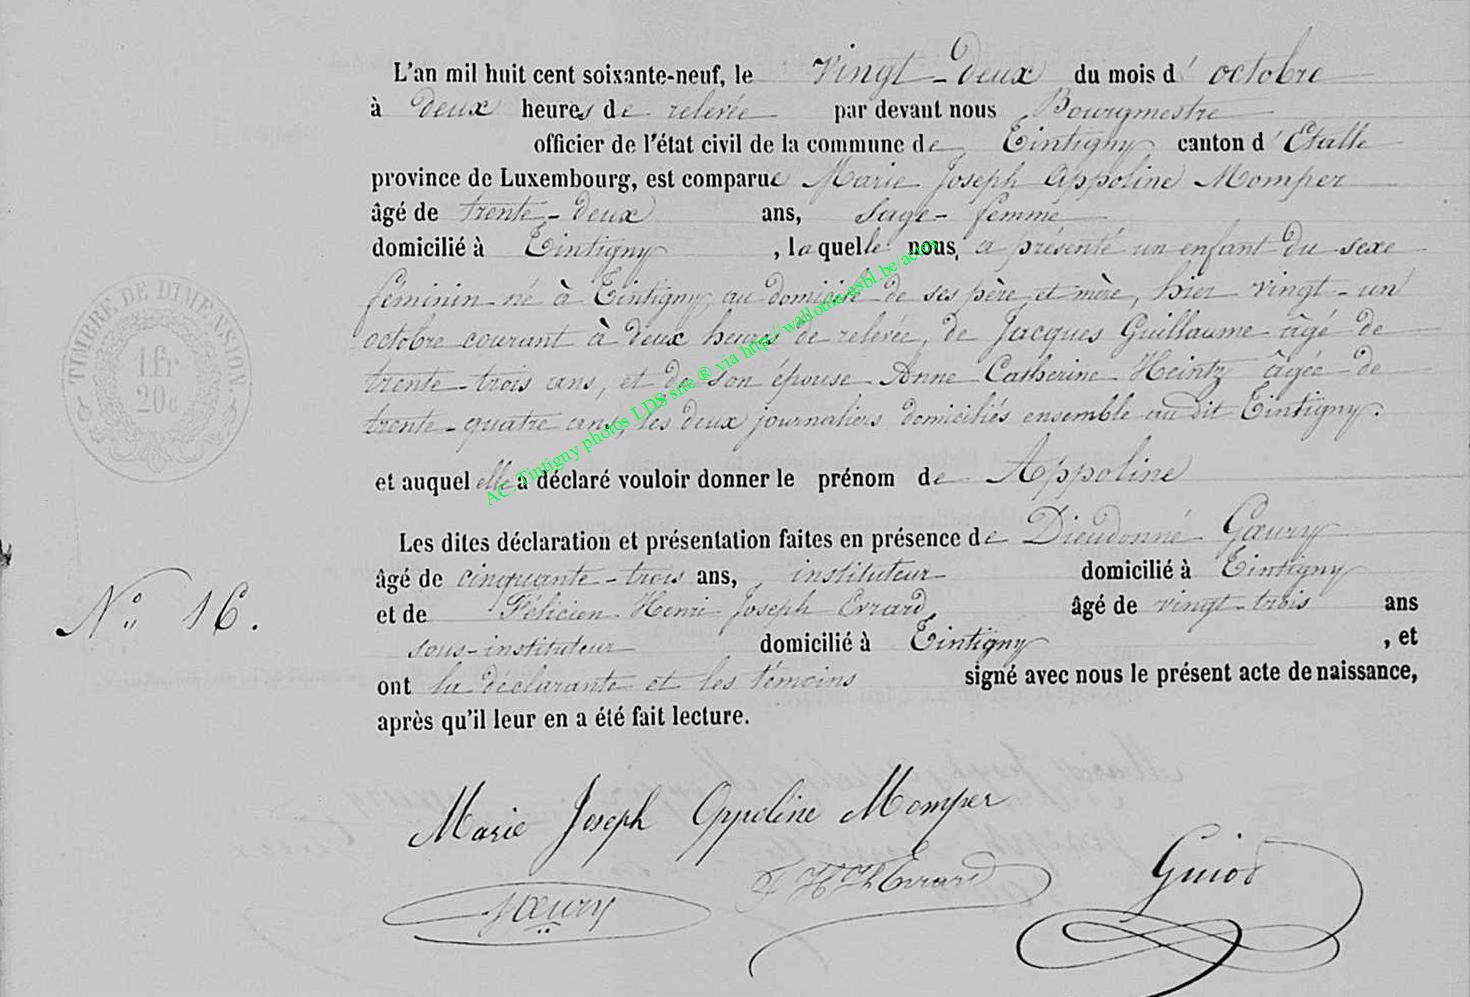 L'an mil huit cent soixante-neuf, le vingt-deux du mois d'octobre
à deux heures de relevée par devant nous Bourgmestre
officier de l'état civil de la commune de Tintigny canton d'Etalle
province de Luxembourg, est comparue Marie Joseph Appoline Momper
âgé de trente-deux ans, sage-femme
domicilié à Tintigny, laquelle nous, a présenté un enfant du sexe
féminin né à Tintigny, au domicile de ses père et mère, hier vingt-un
octobre courant à deux heures de relevée, de Jacques Guillaume âgé de
trente-trois ans, et de son épouse Anne Catherine Heintz âgée de
trente-quatre ans, les deux journaliers domiciliés ensemble au dit Tintigny.
et auquel elle a déclaré vouloir donner le prénom de Appoline
Les dites déclaration et présentation faites en présence de Dieudonné Gœury
âgé de cinquante-trois ans, instituteur domicilié à Tintigny
et de Félicien Henri Joseph Evrard, âgé de vingt-trois ans
sous-instituteur domicilié à Tintigny, et
ont la déclarante et les témoins signé avec nous le présent acte de naissance,
après qu'il leur en a été fait lecture.
N° 16.
TIMBRE DE DIMENSION
1 fr
20 c
Marie Joseph Oppoline Momper
Gœury
F H Jh Evrard
Guiod
AC Tintigny photos LDS site ® via http://wallonia-asbl.be/actes